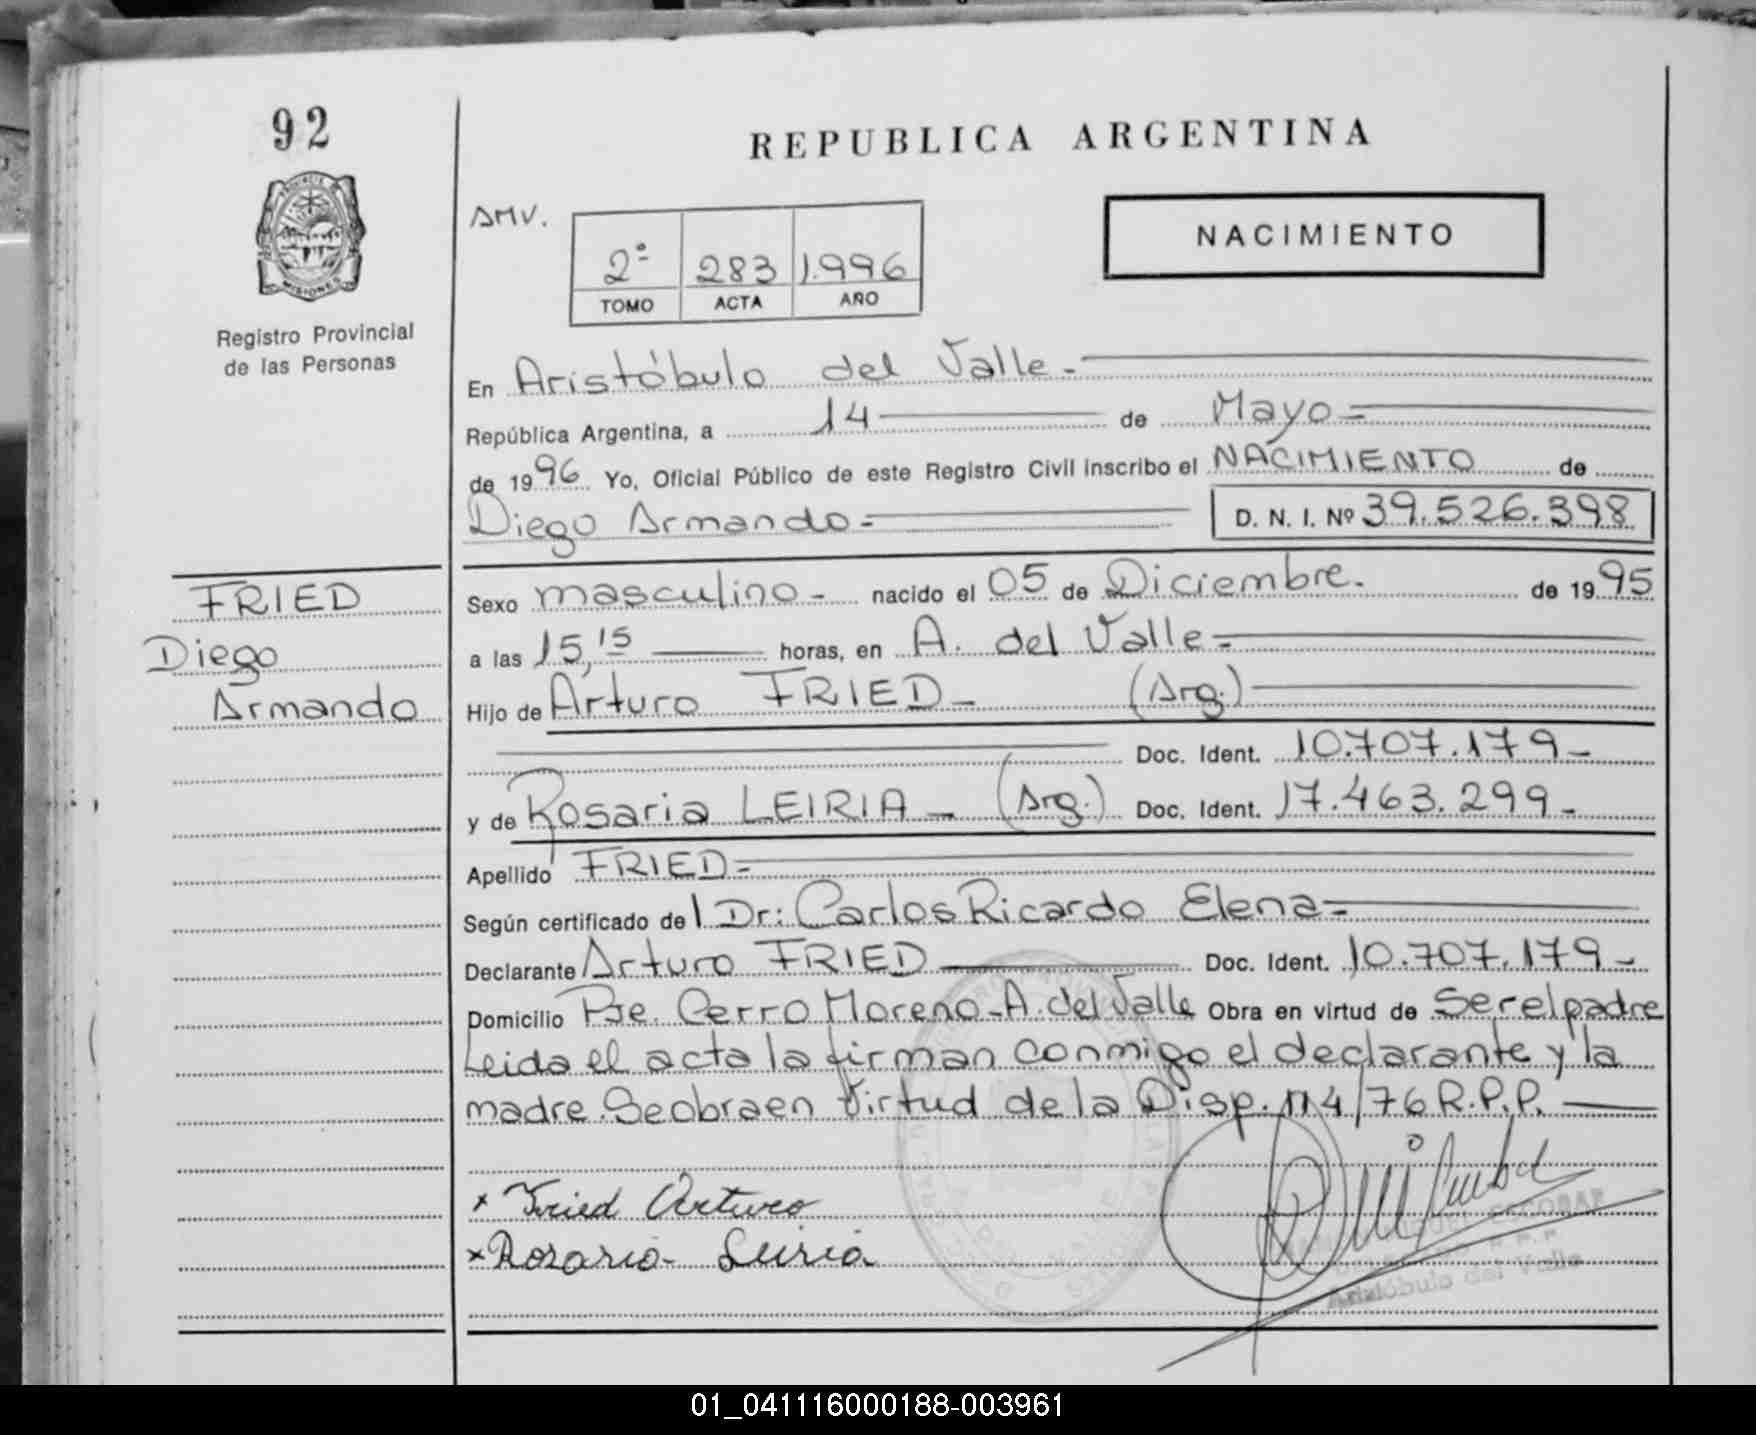 92
REPUBLICA ARGENTINA
PROVINCIA DE
MISIONES
Registro Provincial
de las Personas
AMV.
2º 283 1.996
TOMO ACTA AÑO
NACIMIENTO
En Aristóbulo del Valle.-
República Argentina, a 14 de Mayo-
de 1996 Yo, Oficial Público de este Registro Civil inscribo el NACIMIENTO de
Diego Armando- D. N. I. Nº 39.526.398
FRIED
Diego
Armando
Sexo masculino- nacido el 05 de Diciembre. de 1995
a las 15,15 horas, en A. del Valle-
Hijo de Arturo FRIED- (Arg.)
Doc. Ident. 10.707.179-
y de Rosaria LEIRIA- (Arg.) Doc. Ident. 17.463.299-
Apellido FRIED-
Según certificado del Dr: Carlos Ricardo Elena-
Declarante Arturo FRIED Doc. Ident. 10.707.179-
Domicilio Pje. Cerro Moreno-A.del Valle Obra en virtud de Ser el padre
Leida el acta la firman conmigo el declarante y la
madre. Se obra en Virtud de la Disp. 114/76 R.P.P.
x Fried Arturo
x Rosario- Leiria
ESCOBAR
Aristóbulo del Valle
01_041116000188-003961